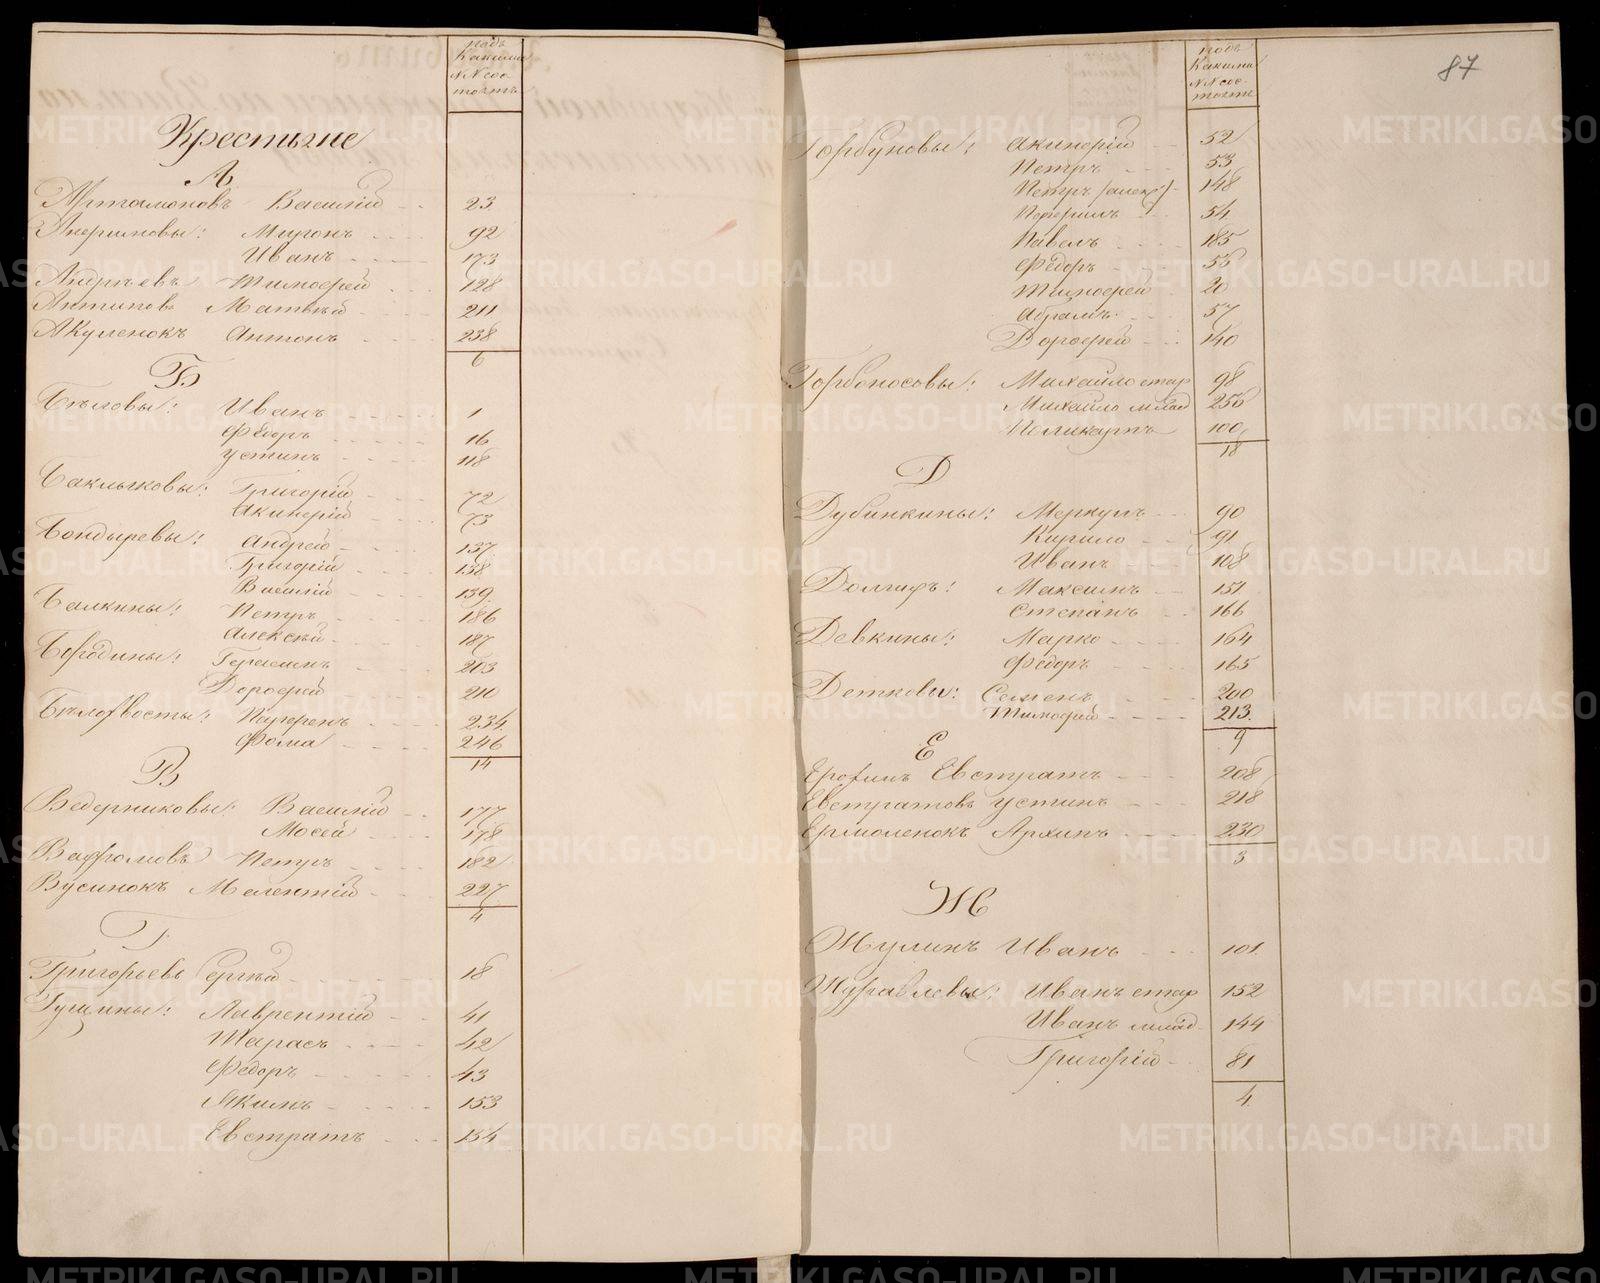 подъ
Какими
NN сос-
тоятъ
Крестьяне
А
Артамоновъ Василій 23
Анфимовы: Миронъ 92
Иванъ 173
Андреевъ Тимофей 128
Антиповъ Матвей 211
Акуленокъ Антонъ 238
6
Б
Беловы: Иванъ 1
Федоръ 16
Устинъ 118
Баклыковы: Григорій 72
Акинфій 73
Бондыревы: Андрей 137
Григорій 138
Василій 139
Балкины: Петръ 186
Алексей 187
Бородины: Герасимъ 203
Дорофей 210
Белохвосты: Парфенъ 234
Фома 246
14
В
Ведерниковы: Василій 177
Мосей 178
Петръ 182
Вусинокъ Мелентій 227
4
Г
Григорьевъ Сергей 18
Гущины: Лаврентій 41
Тарасъ 42
Федоръ 43
Якимъ 153
Евстратъ 154
подъ
Какими
NN сос-
тоятъ
87
Горбуновы: Акинфій 52
Петръ 53
Петръ (алек) 148
Порфиръ 54
Павелъ 185
Федоръ 56
Тимофей 20
Абрамъ 57
Дорофей 140
Горбоносовы: Михайло стар 98
Михайло млад 256
Поликарпъ 100
18
Д
Дубинкины: Меркулъ 90
Кирило 91
Иванъ 108
Долгихъ: Максимъ 151
Степанъ 166
Девкины: Марко 164
Федоръ 165
Детковы: Семенъ 200
Тимофей 213
9
Е
Ерохинъ Евстратъ 208
Евстратовъ Устинъ 218
Ермоленокъ Архипъ 230
3
Ж
Жулинъ Иванъ 101
Журавлевы: Иванъ стар 152
Иванъ млад 144
Григорій 81
4
METRIKI.GASO-URAL.RU